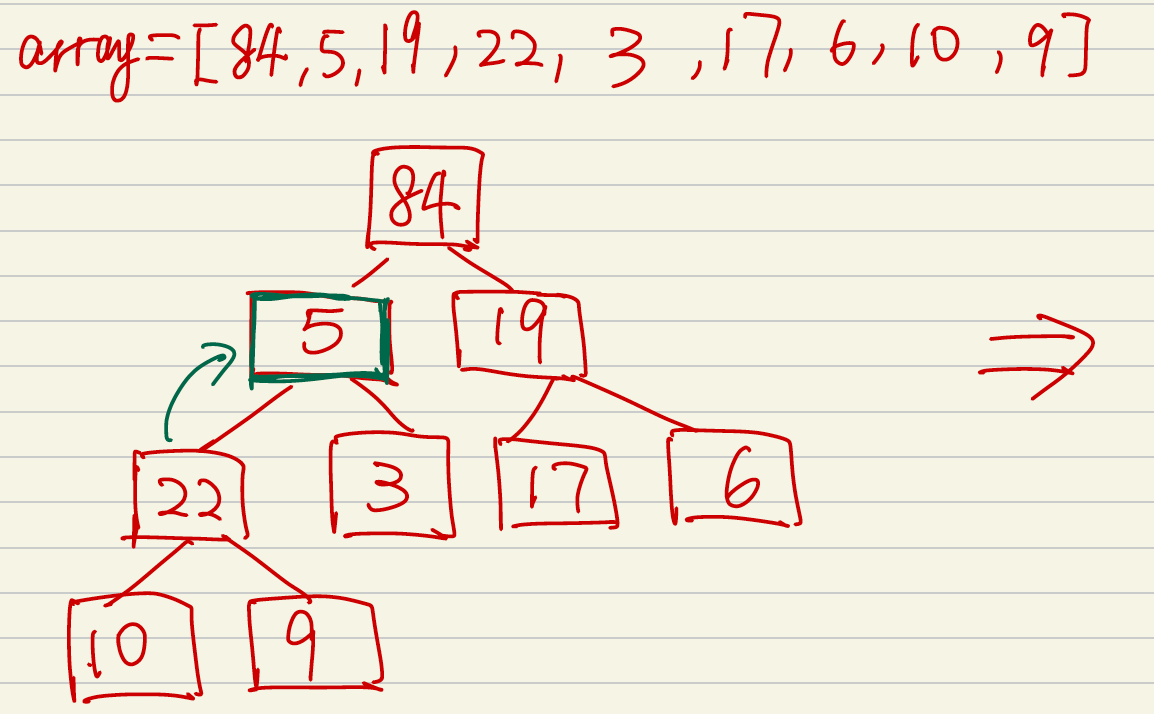 array=[84,5,19,22,3,17,6,10,9]
84
5 19
22 3 17 6
10 9